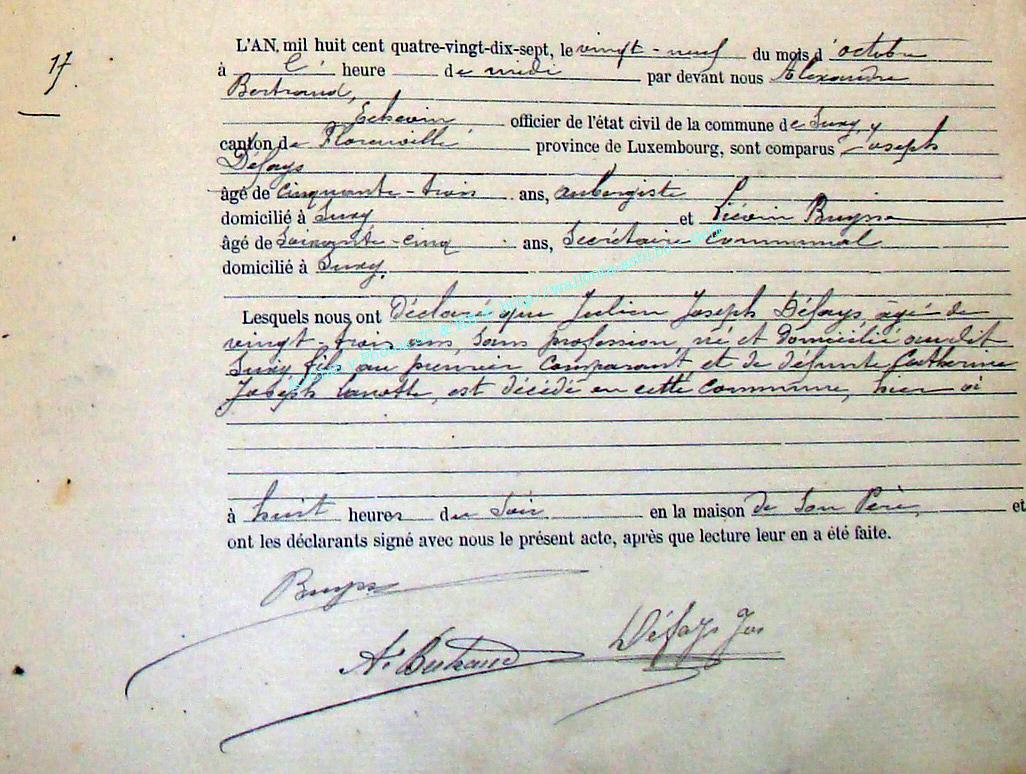 17.
L'AN, mil huit cent quatre-vingt-dix-sept, le vingt-neuf du mois d'octobre
à l' heure de midi par devant nous Alexandre
Bertrand,
Echevin officier de l'état civil de la commune de Suxy,
canton de Florenville province de Luxembourg, sont comparus Joseph
Défays
âgé de cinquante-trois ans, aubergiste
domicilié à Suxy et Liévin Buysse
âgé de Soixante-cinq ans, Secrétaire communal
domicilié à Suxy.
Lesquels nous ont déclaré que Julien Joseph Défays âgé de
vingt-trois ans, sans profession, né et domicilié audit
Suxy, fils du premier comparant et de défunte Catherine
Joseph, est décédé en cette commune, hier à
à huit heures du soir en la maison de son Père, et
ont les déclarants signé avec nous le présent acte, après que lecture leur en a été faite.
Buysse
Ae Bertrand Défays Jos